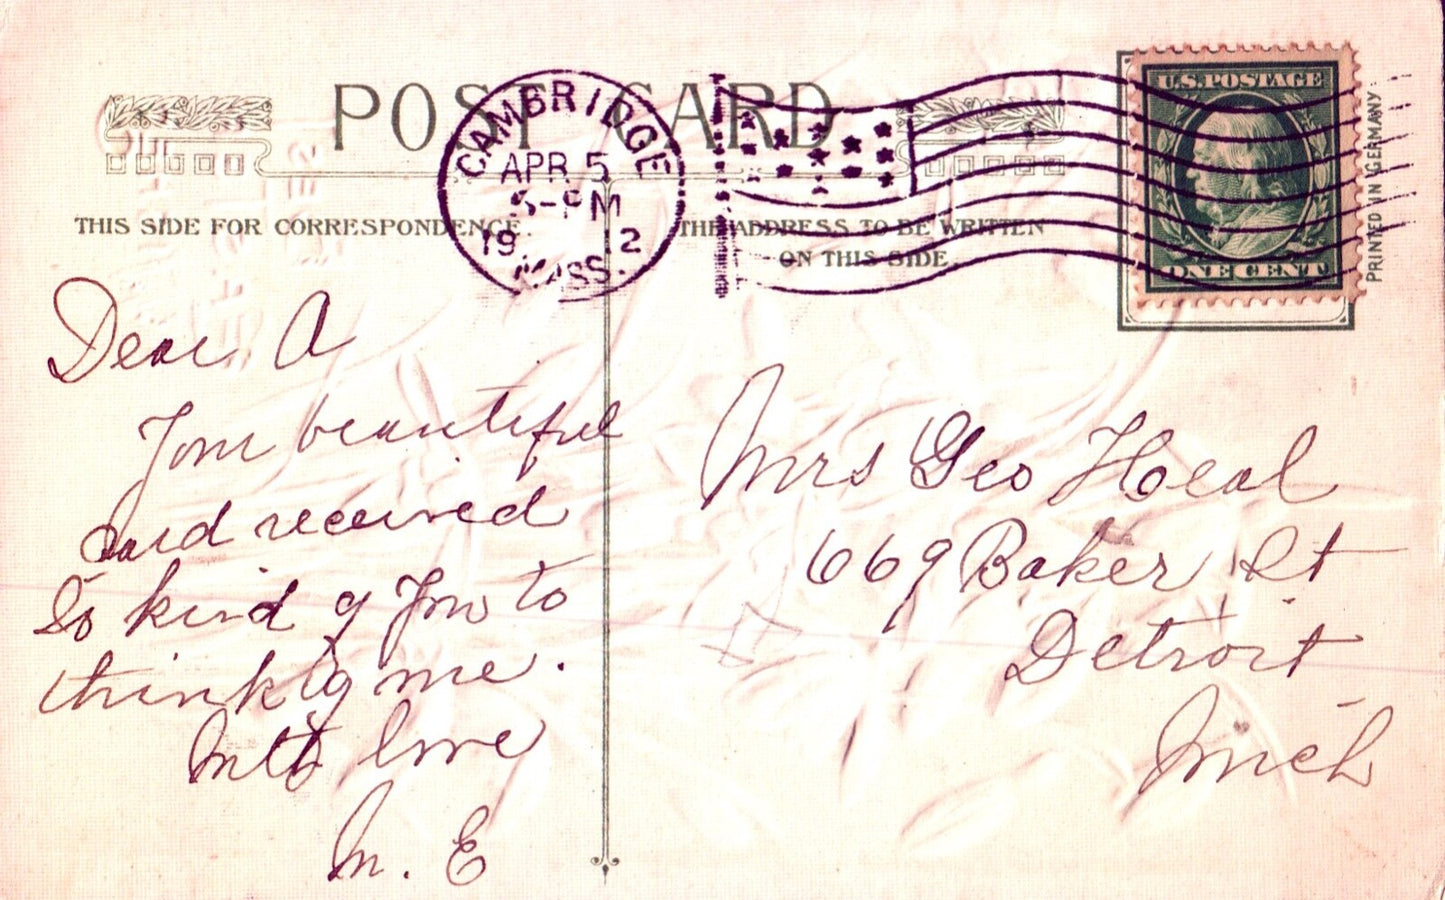 POST CARD
CAMBRIDGE
APR 5
5-PM
19 12
MASS.
U.S. POSTAGE
ONE CENT
PRINTED IN GERMANY
THIS SIDE FOR CORRESPONDENCE.
THE ADDRESS TO BE WRITTEN
ON THIS SIDE
Dear A
Your beautiful
card received
So kind of You to
think of me.
With love
M. E
Mrs Geo Heal
669 Baker St
Detroit
Mich